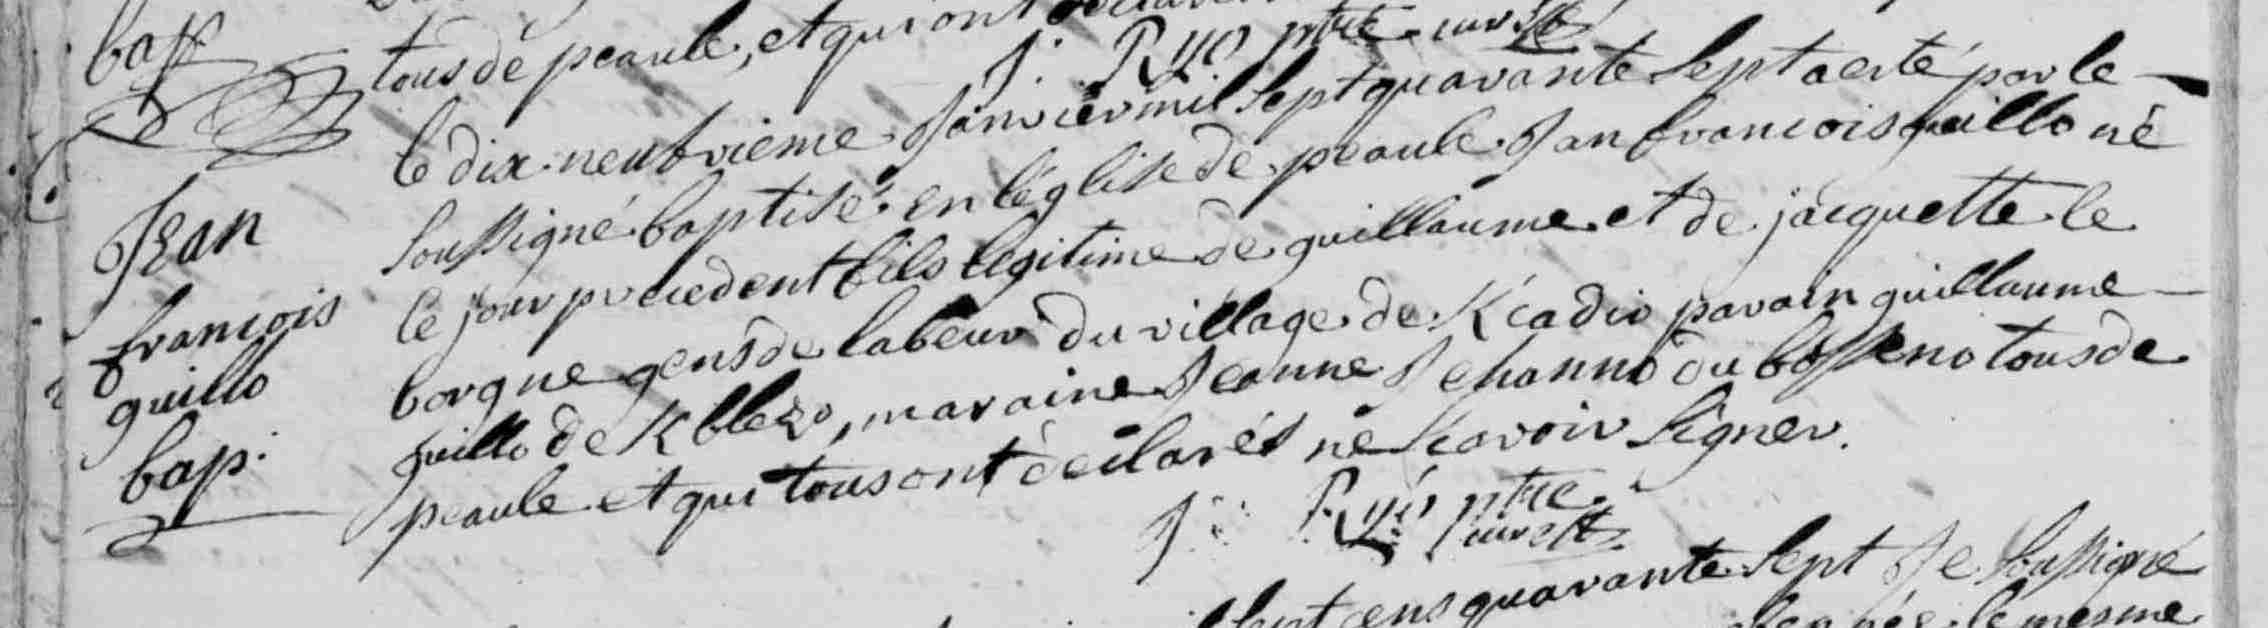 bap
tous de peaule, et qui ont
J. Ryo ptre curé
Le dix neufvieme Janvier mil sept quarante sept a esté par le
soussigné baptisé en léglise de peaule Jan francois guillo né
Jean
le jour precedent fils legitime de guillaume et de jacquette le
francois
borgne gens de labeur du village de K/cadio parain guillaume
guillo
guillo de K/blezo, maraine Jeanne Jehanno du bosseno tous de
bap.
peaule et qui tous ont déclarés ne scavoir signer.
J. Ryo ptre
curé
sept cens quarante sept Je soussigné
le mesme